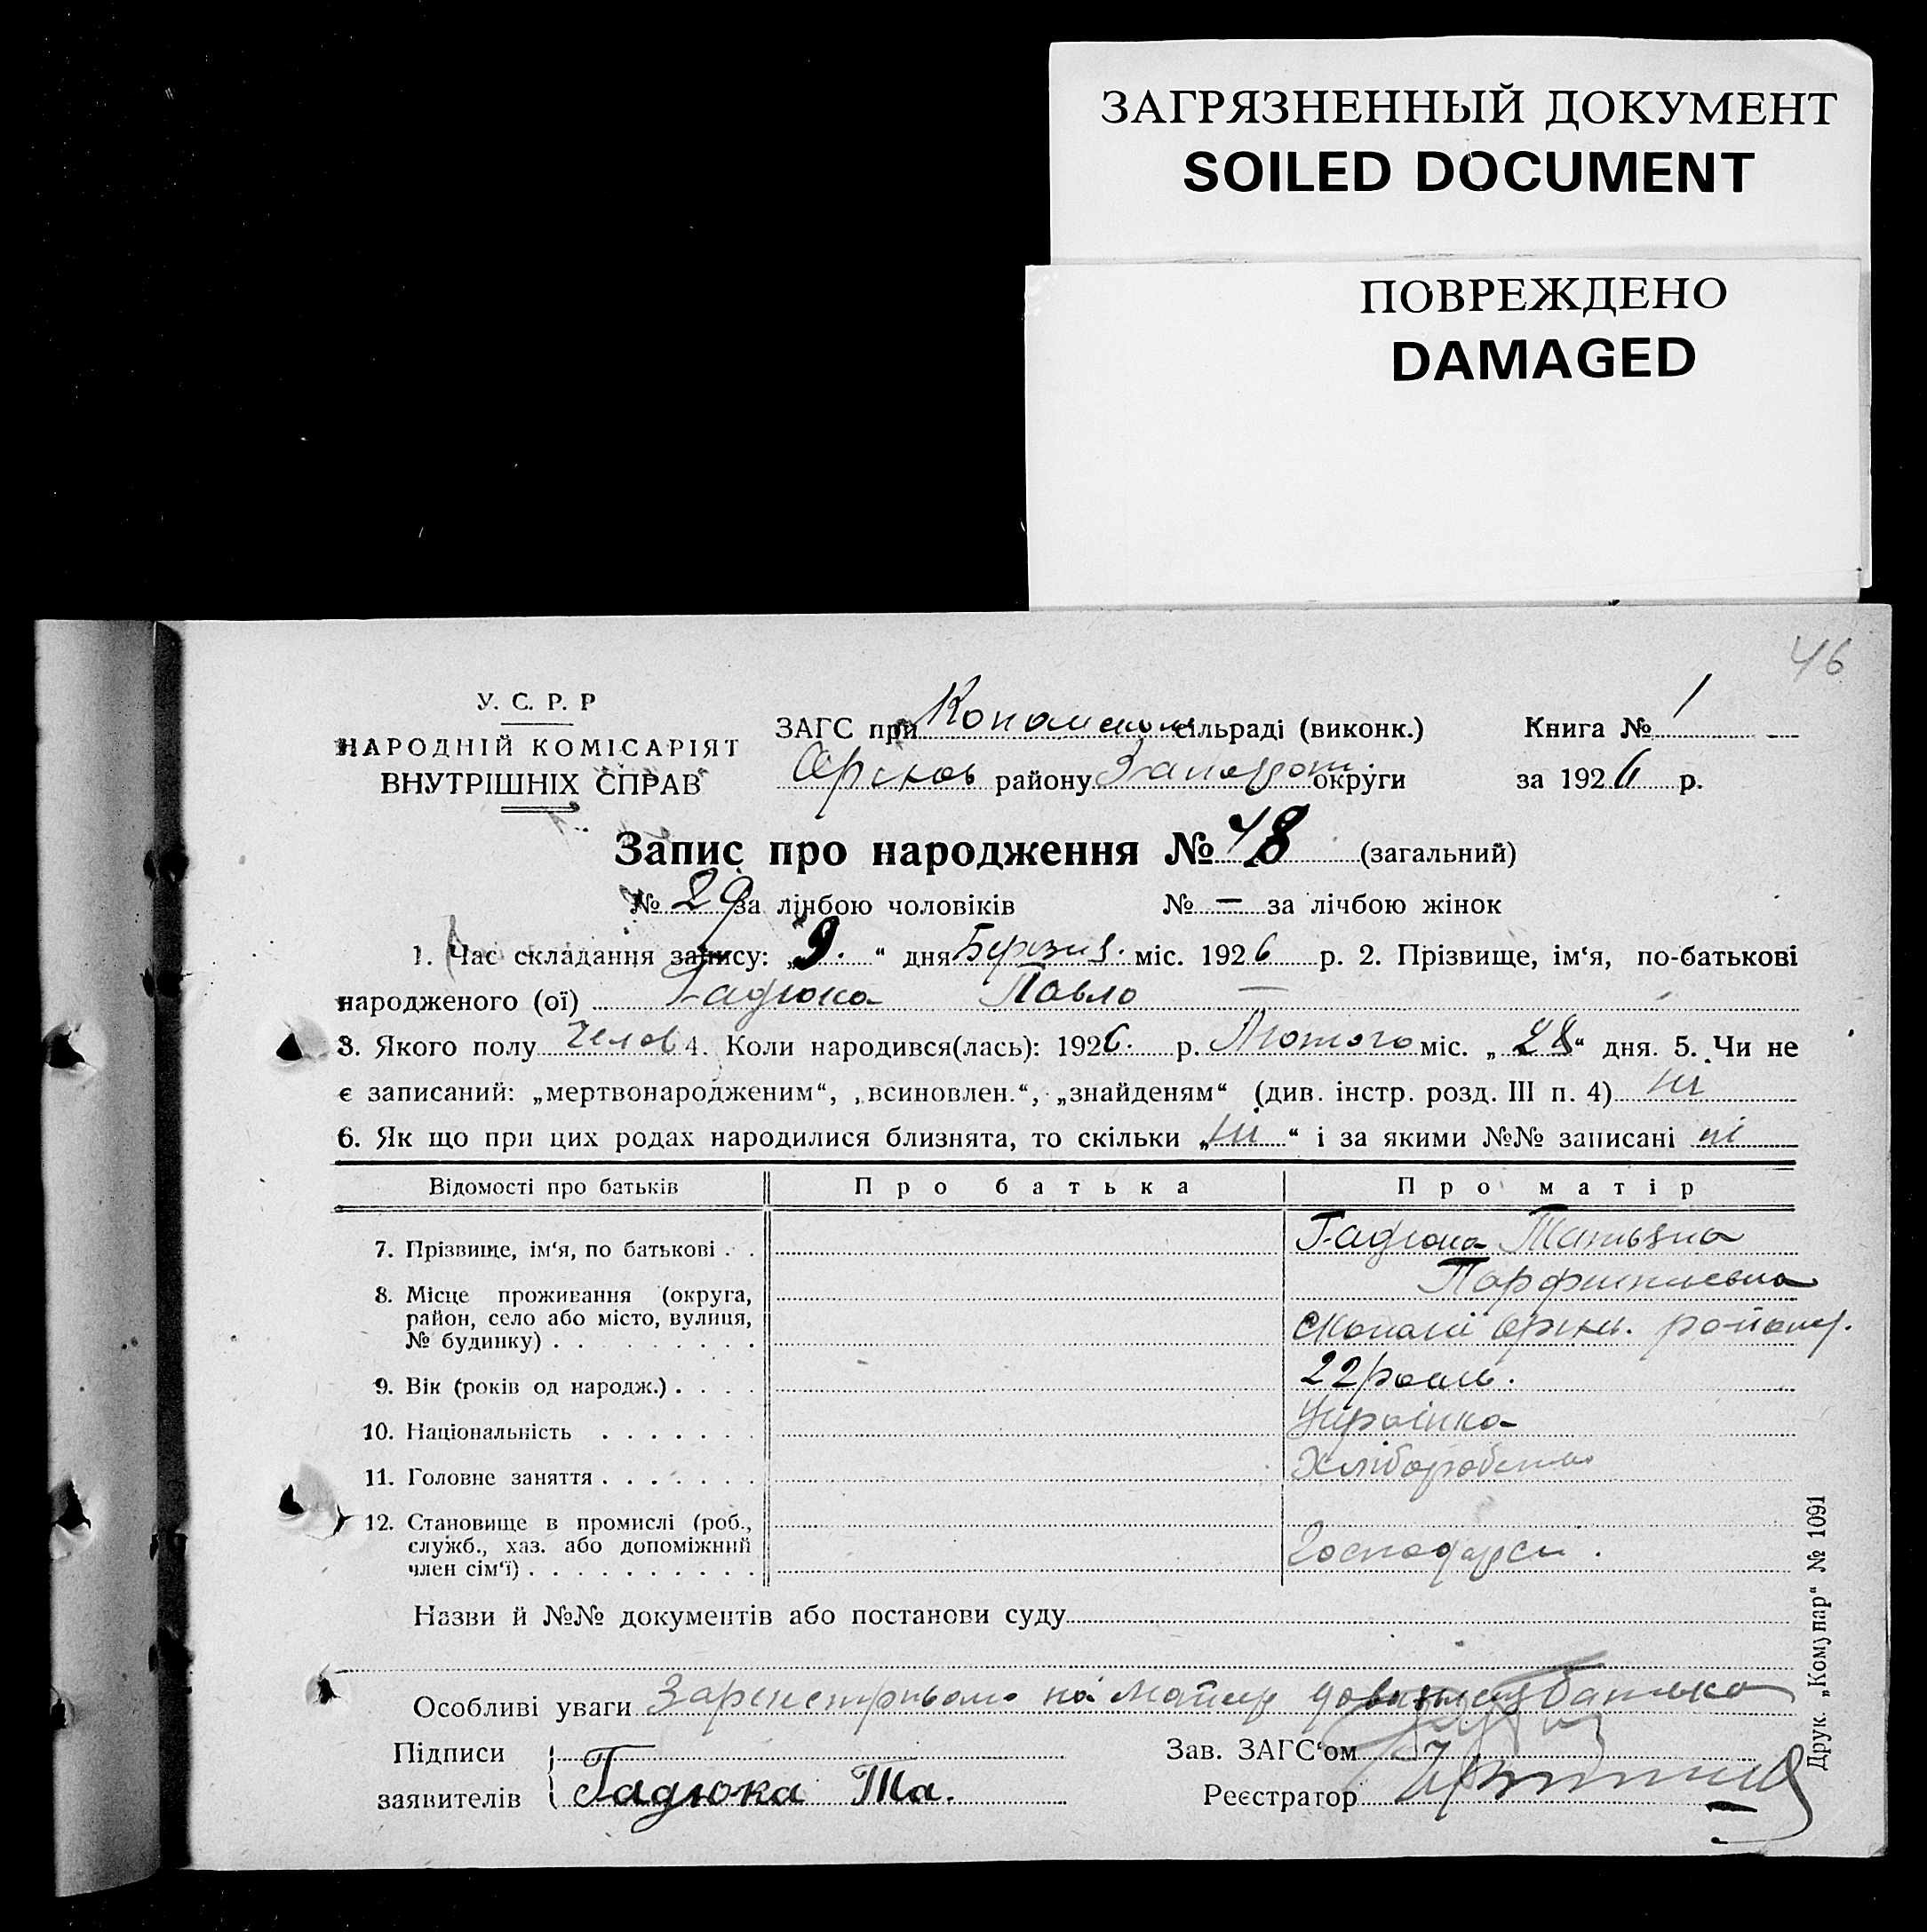 ЗАГРЯЗНЕННЫЙ ДОКУМЕНТ
SOILED DOCUMENT
ПОВРЕЖДЕНО
DAMAGED
46
У. С. Р. Р
НАРОДНІЙ КОМІСАРІЯТ
ВНУТРІШНІХ СПРАВ
ЗАГС при сільраді (виконк.) Книга № 1
району округи за 1926 р.
Запис про народження № 48 (загальний)
№ 29 за лінбою чоловіків № — за лічбою жінок
1. Час складання запису: „9.“ дня міс. 1926 р. 2. Прізвище, ім‘я, по-батькові
народженого (ої) Гадюка Павло —
3. Якого полу Челов 4. Коли народився(лась): 1926. р. Лютого міс. „28“ дня. 5. Чи не
є записаний: „мертвонародженим“, „всиновлен.“, „знайденям“ (див. інстр. розд. III п. 4) ні
6. Як що при цих родах народилися близнята, то скільки „ні“ і за якими №№ записані ні
Відомості про батьків Про батька Про матір
7. Прізвище, ім‘я, по батькові . . Гадюка Татьяна
8. Місце проживання (округа,
район, село або місто, вулиця,
№ будинку) . . . . . . . . .
9. Вік (років од народж.) . . . 22
10. Національність . . . . . . . Українка
11. Головне заняття . . . . . . .
12. Становище в промислі (роб.,
служб., хаз. або допоміжний
член сім‘ї) . . . . . . . . . .
Назви й №№ документів або постанови суду
Особливі уваги на батька
Підписи Зав. ЗАГС‘ом
заявителів Гадюка Та. Реєстратор
Друк. „Комунар“ № 1091